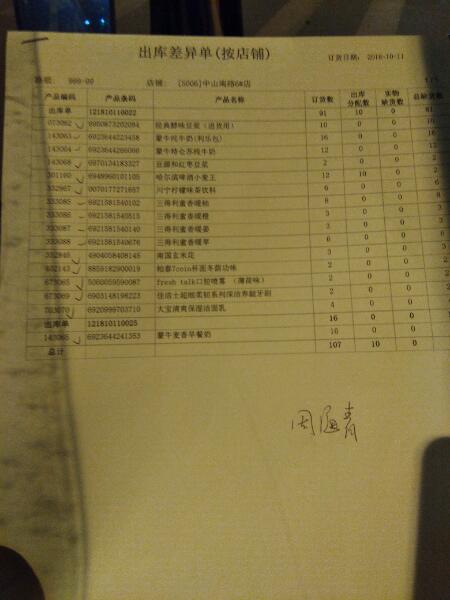 出库差异单(按店铺)
订货日期: 2018-10-11
路顺: 999-99 店铺: [S006]中山南路6#店 1/1
产品编码 产品条码 产品名称 订货数 出库分配数 实物缺货数 总缺货数
出库单 121810110022 91 10 0 81
073062 6950873202094 经典醇味豆浆(退货用) 10 0 0
143063 6923644223458 蒙牛纯牛奶(利乐包) 16 0 0
143064 6923644266066 蒙牛特仑苏纯牛奶 12 0 0
143068 6970134183327 豆跟和红枣豆浆 2 0 0
301160 6949960101105 哈尔滨啤酒小麦王 12 10 0
332867 0070177271657 川宁柠檬味茶饮料 6 0 0
333085 6921581540102 三得利蜜香暖柚 8 0 0
333086 6921581540515 三得利蜜香暖橙 3 0 0
333087 6921581540140 三得利蜜香暖姜 3 0 0
333088 6921581540676 三得利蜜香暖苹 6 0 0
332845 4904058408145 南国玄米是 3 0 0
402143 8859182900019 柏蓉7coin杯面冬荫功味 2 0 0
673065 5060059590087 fresh talk口腔喷雾 (薄荷味) 2 0 0
673069 6903148198223 佳洁士超细柔韧系列深洁养龈牙刷 2 0 0
703070 6920999703710 大宝清爽保湿洁面乳 4 0 0
出库单 121810110025 16 0 0
143065 6923644241353 蒙牛麦香早餐奶 16 0 0
总计 107 10 0